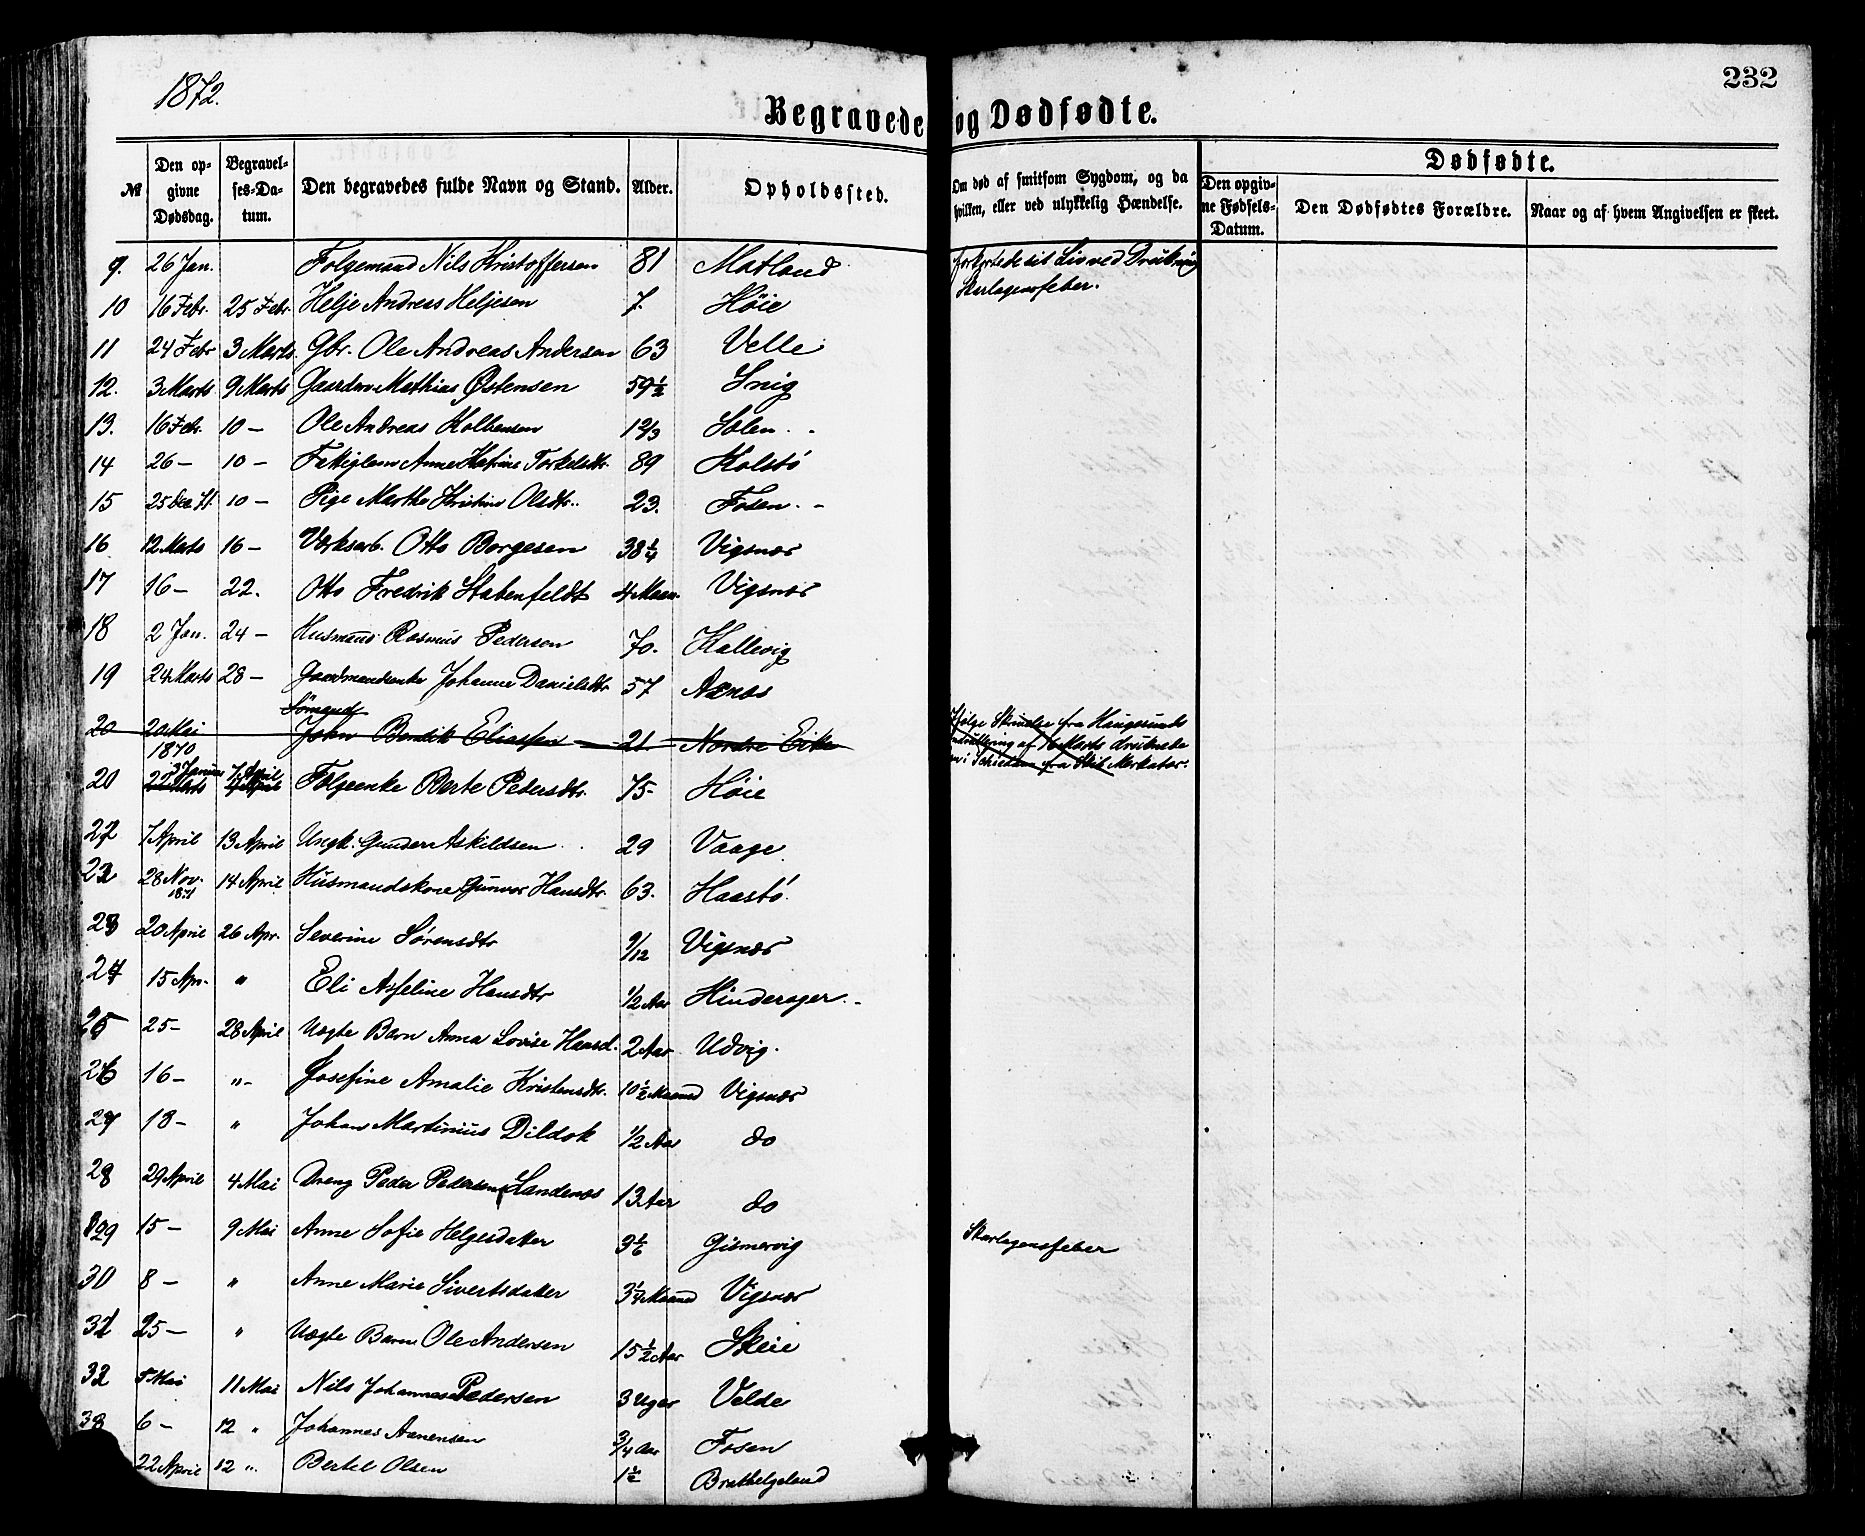 1872.
232
Begravede og Dødfødte.
№
Den opgivne Dødsdag.
Begravelses-Datum.
Den begravedes fulde Navn og Stand.
Alder.
Opholdssted.
Om død af smitsom Sygdom, og da hvilken, eller ved ulykkelig Hændelse.
Dødfødte.
Den opgivne Fødsels-Datum.
Den Dødfødtes Forældre.
Naar og af hvem Angivelsen er skeet.
9. 26 Jan. Folgemand Nils Kristoffersen 81 Matland forkortede sit Liv ved Drukning
10 16 Febr. 25 Febr. Helje Andreas Heljesen 7. Høie Skarlagensfeber.
11 24 Febr 3 Marts. Gbr. Ole Andreas Andersen 63 Velle
12. 3 Marts. 9 Marts Mathias Østensen 59½ Snig
13. 16 Feb. 10 — Ole Andreas Kolbensen 1 2/3 Solen
14 26 — 10 — Anne Katrine Torkelsdtr. 89 Kolstø
15 25 Dec 71. 10 — Pige Marthe Kristine Olsdtr. 23. Fosen
16 12 Marts 16 — Værksarb. Otto Borgesen 38¼ Vigsnæs
17 16 — 22. Otto Fredrik Stabenfeldt 4 Maan. Vigsnæs
18 2 Jan. 24 — Husmand Rasmus Pedersen 70. Kallevig
19 24 Marts 28 — Gaardmandsenke Johanne Danielsdtr 57 Axnæs
Sømand
20 20 Mai John Bendik Eliassen 21 Nordre Eike Ifølge Skrivelse fra Haugesunds
1870 af 16 Marts druknede
i Schiedam fra Skib Merkator.
3 Januar 7 April
20 22 Marts Folgeenke Berte Pedersdtr. 75 Høie
22 7 April 13 April Ungk. Gunder Askildsen 29 Vaage
22 28 Nov. 1871 14 April Husmandskone Gunvor Hansdtr. 63. Haastø
23 20 April 26 Apr. Severine Sørensdtr 9/12 Vigsnæs
24 15 Apr. " Eli Asseline Hansdtr ½ Aar Hinderager
25 25 — 28 April Uægte Barn Anna Lovise Hansd. 2 Aar Udvig.
26 16 — " Josefine Amalie Kristensdtr. 10½ Maaned Vigsnæs
27 18 — " Johan Martinius Dildok ½ Aar do
28 29 April 4 Mai Dreng Peder Pedersen Sandenæs 13 Aar do
29 15 — 9 Mai Anne Sofie Helgesdatter 3 1/6 Gismervig Skarlagensfeber
30 8 — " Anne Marie Sivertsdatter 3¼ Maaned Vigsnæs
31 25 — " Uægte Barn Ole Andersen 15½ Aar Skeie
32 5 Mai 11 Mai Nils Johannes Pedersen 3 Uger Velde
33 6 — 12 " Johannes Aanensen ¾ Aar Fosen
22 April 12 " Bertel Olsen 1½ Brekhelgeland